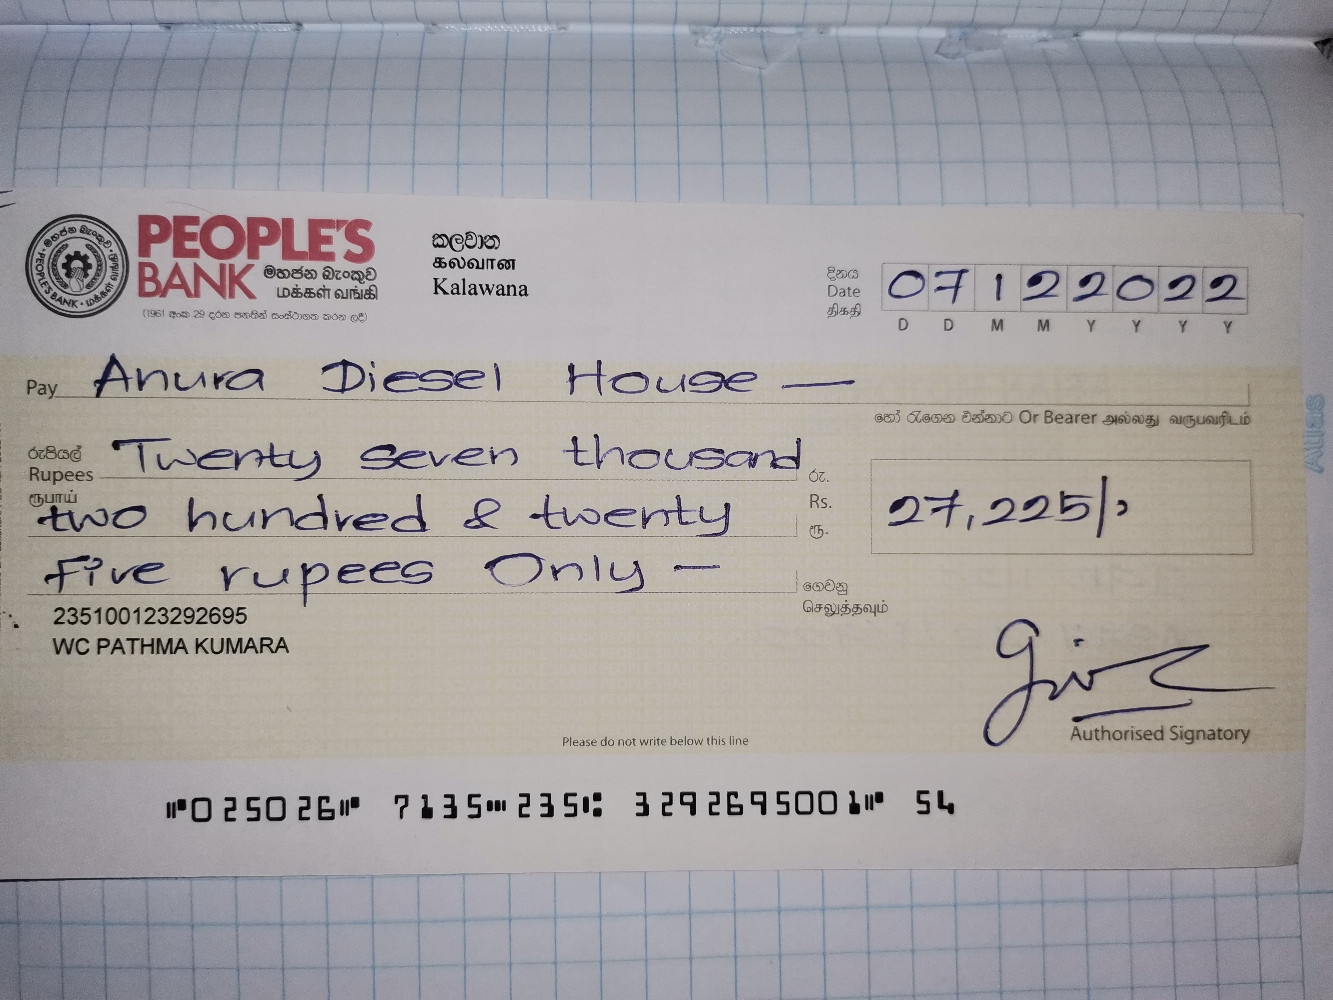 PEOPLE'S
BANK මහජන බැංකුව
மக்கள் வங்கி
(1961 අංක 29 දරන පනතින් සංස්ථාගත කරන ලදී)
කලවාන
கலவான
Kalawana
දිනය
Date
திகதி
07122022
D D M M Y Y Y Y
Pay Anura Diesel House —
හෝ රැගෙන එන්නාට Or Bearer அல்லது வருபவரிடம்
රුපියල්
Rupees
ரூபாய்
Twenty seven thousand
two hundred & twenty
Five rupees Only —
රු.
Rs.
ரூ.
27,225/-
ගෙවනු
செலுத்தவும்
235100123292695
WC PATHMA KUMARA
Authorised Signatory
Please do not write below this line
⑈025026⑈ 7135⑉235⑆ 3292695001⑈ 54
Atlas